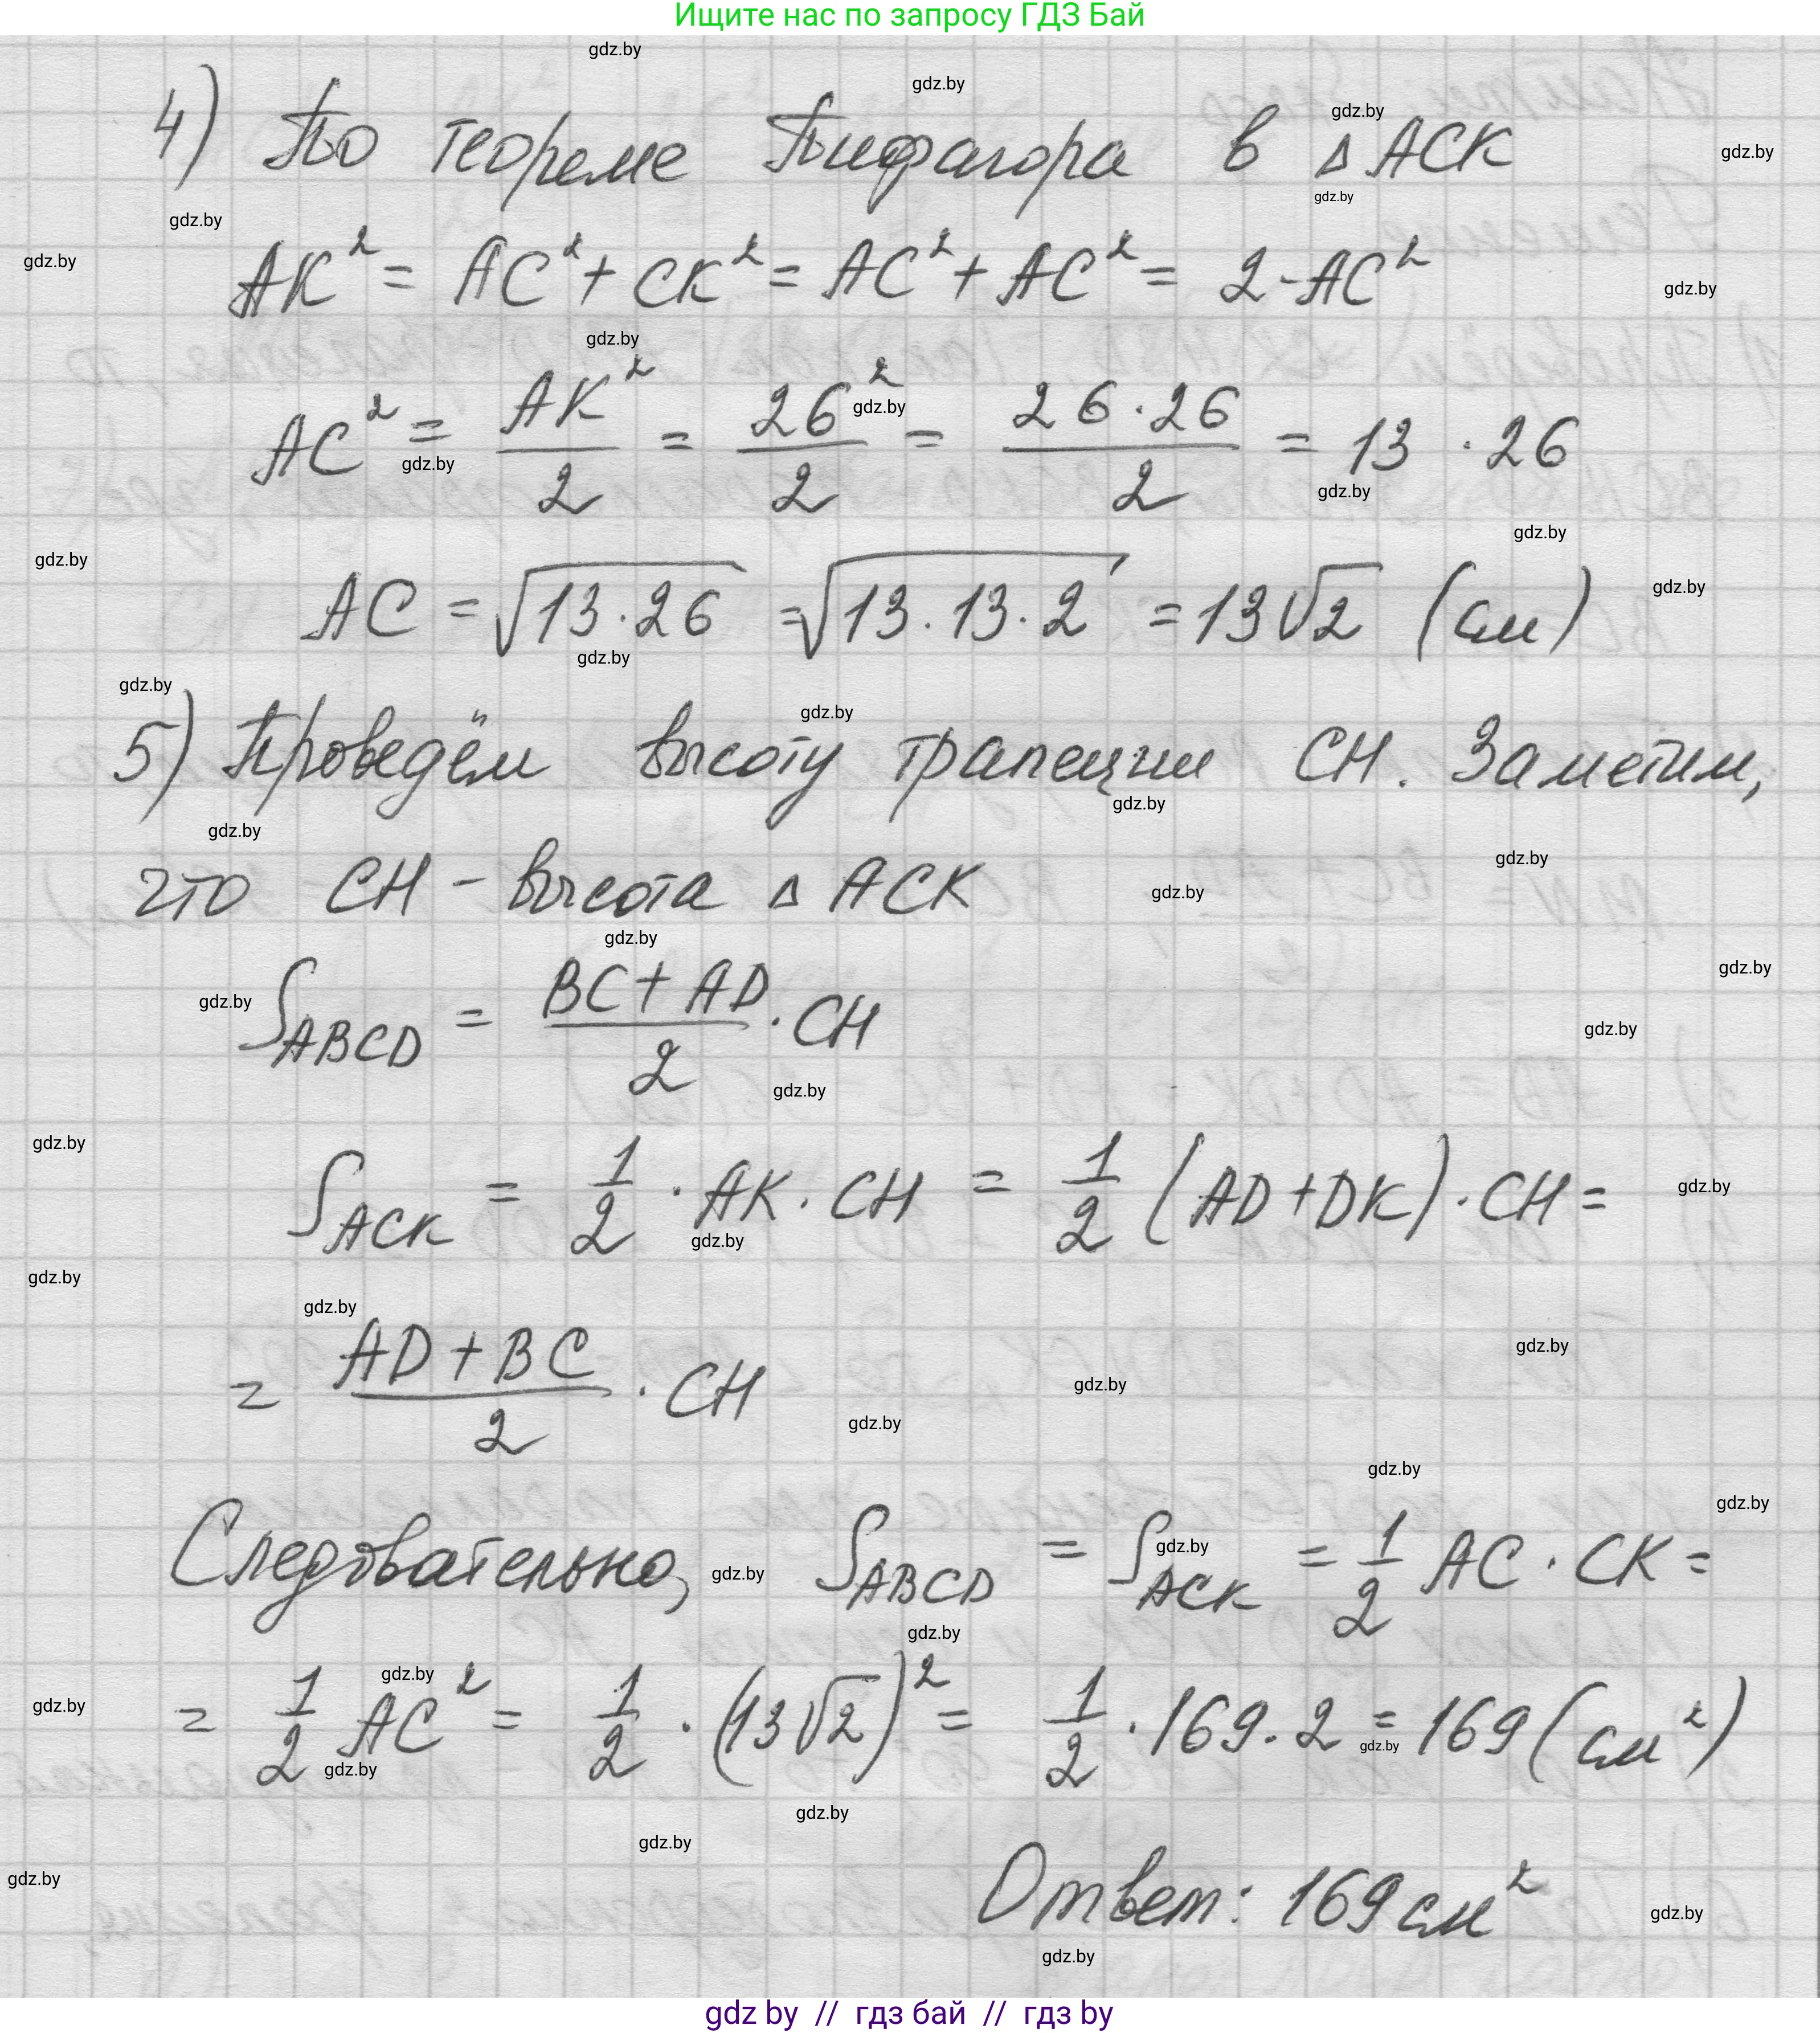 Ищите нас по запросу ГДЗ Бай
4) По теореме Пифагора в △ACK
AK² = AC² + CK² = AC² + AC² = 2·AC²
AC² = AK²/2 = 26²/2 = 26·26/2 = 13·26
AC = √(13·26) = √(13·13·2) = 13√2 (см)
5) Проведём высоту трапеции CH. Заметим,
что CH – высота △ACK
S_ABCD = (BC + AD)/2 · CH
S_ACK = 1/2 · AK · CH = 1/2 (AD + DK) · CH =
= (AD + BC)/2 · CH
Следовательно, S_ABCD = S_ACK = 1/2 AC · CK =
= 1/2 AC² = 1/2 · (13√2)² = 1/2 · 169 · 2 = 169 (см²)
Ответ: 169 см²
gdz by // гдз бай // гдз by